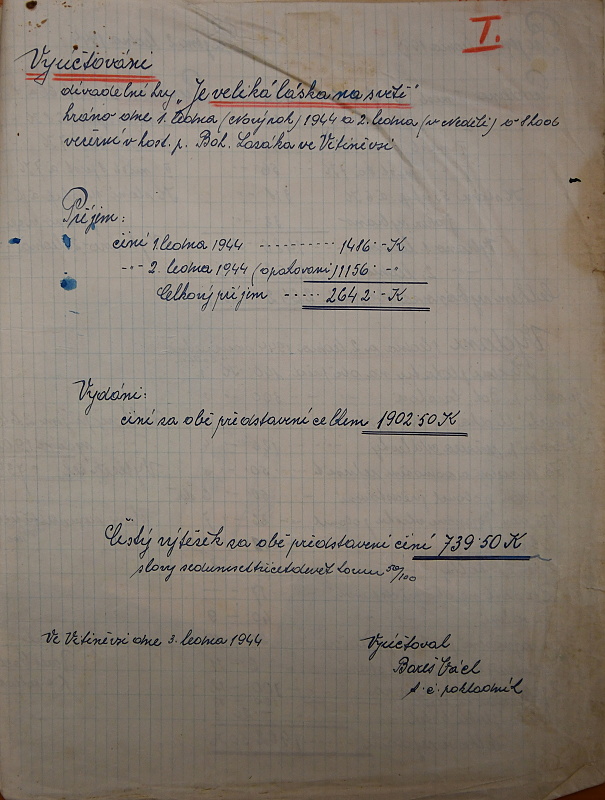 I.
Vyúčtování
divadelní hry „Je veliká láska na světě"
hráno dne 1. ledna (Nový rok) 1944 a 2. ledna (v Neděli) o 8 hod
večerní v host. p. Boh. Lozáka ve Vtiněvsi
Příjem:
činí 1. ledna 1944 ---------- 1486·-K
-"- 2. ledna 1944 (opakování) 1156 -"-
Celkový příjem ----- 2642·-K
Vydání:
činí za obě představení celkem 1902·50 K
Čistý výtěžek za obě představení činí 739·50 K
slovy sedmsettřicetdevět korun 50/100
Ve Vtiněvsi dne 3. ledna 1944
Vyúčtoval
Bareš
t. č. pokladník